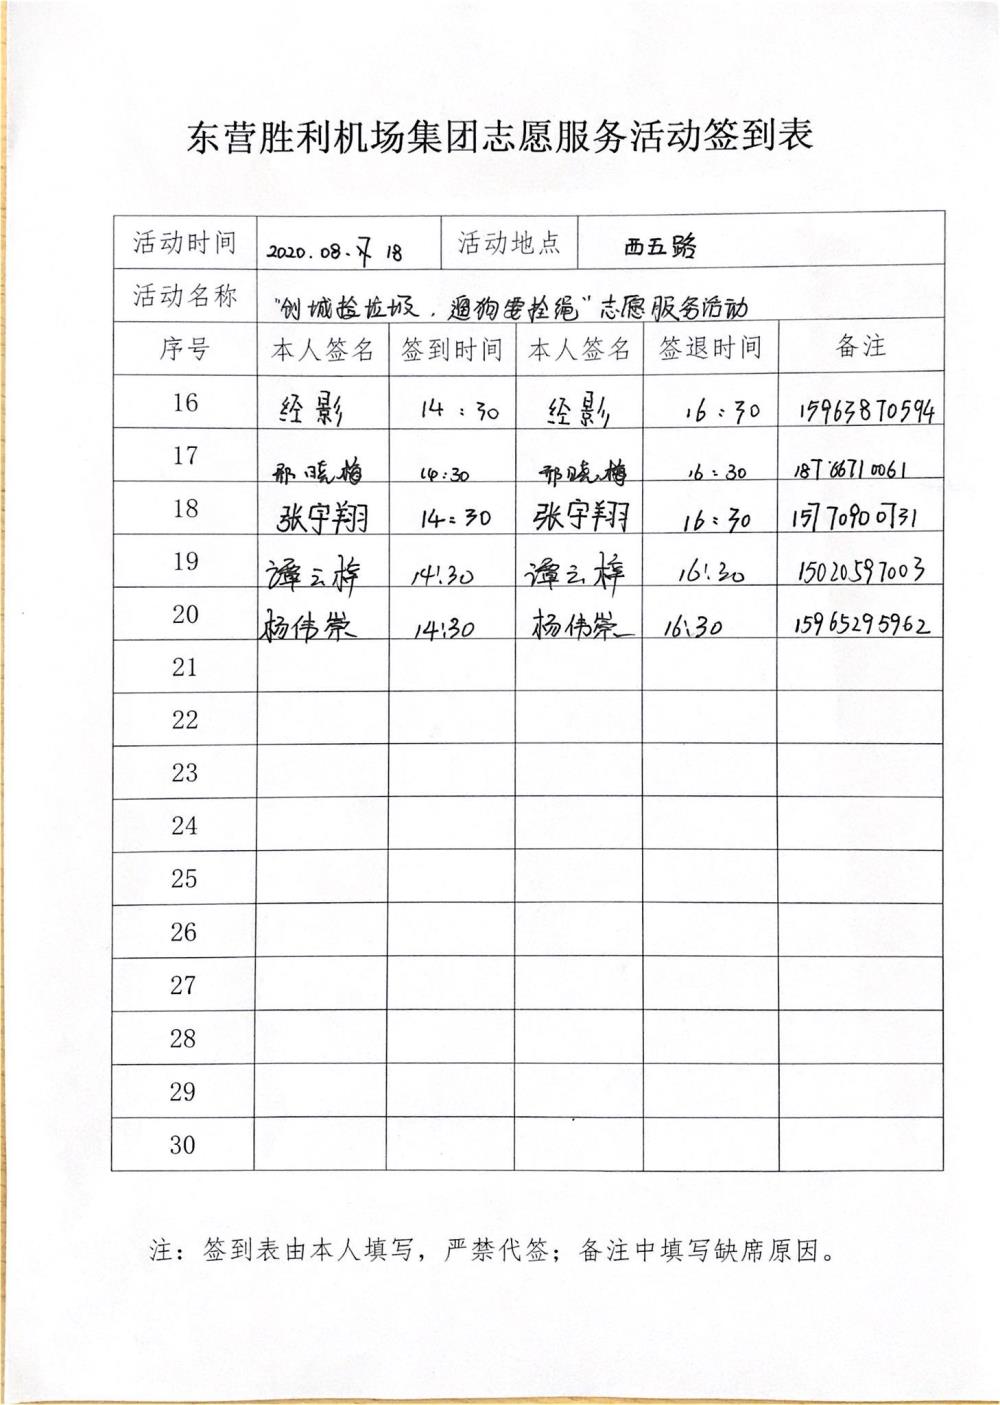 东营胜利机场集团志愿服务活动签到表
活动时间 2020.08. 18 活动地点 西五路
活动名称 "创城捡垃圾，遛狗要拴绳"志愿服务活动
序号 本人签名 签到时间 本人签名 签退时间 备注
16 经影 14:30 经影 16:30 15963870594
17 邢晓梅 14:30 邢晓梅 16:30
18 张宇翔 14:30 张宇翔 16:30
19 谭云梓 14:30 谭云梓 16:30 15020597003
20 杨伟崇 14:30 杨伟崇 16:30 15965295962
21
22
23
24
25
26
27
28
29
30
注：签到表由本人填写，严禁代签；备注中填写缺席原因。